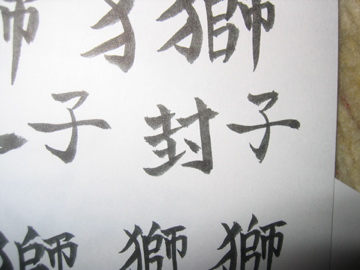 師 犭 獅
子 封 子
獅 獅 獅